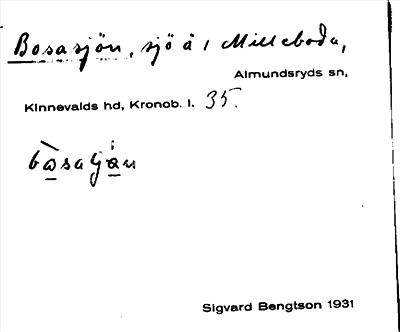 Bosasjön, sjö å 1 Milleboda,
Almundsryds sn,
Kinnevalds hd, Kronob. l. 35.
Sigvard Bengtson 1931